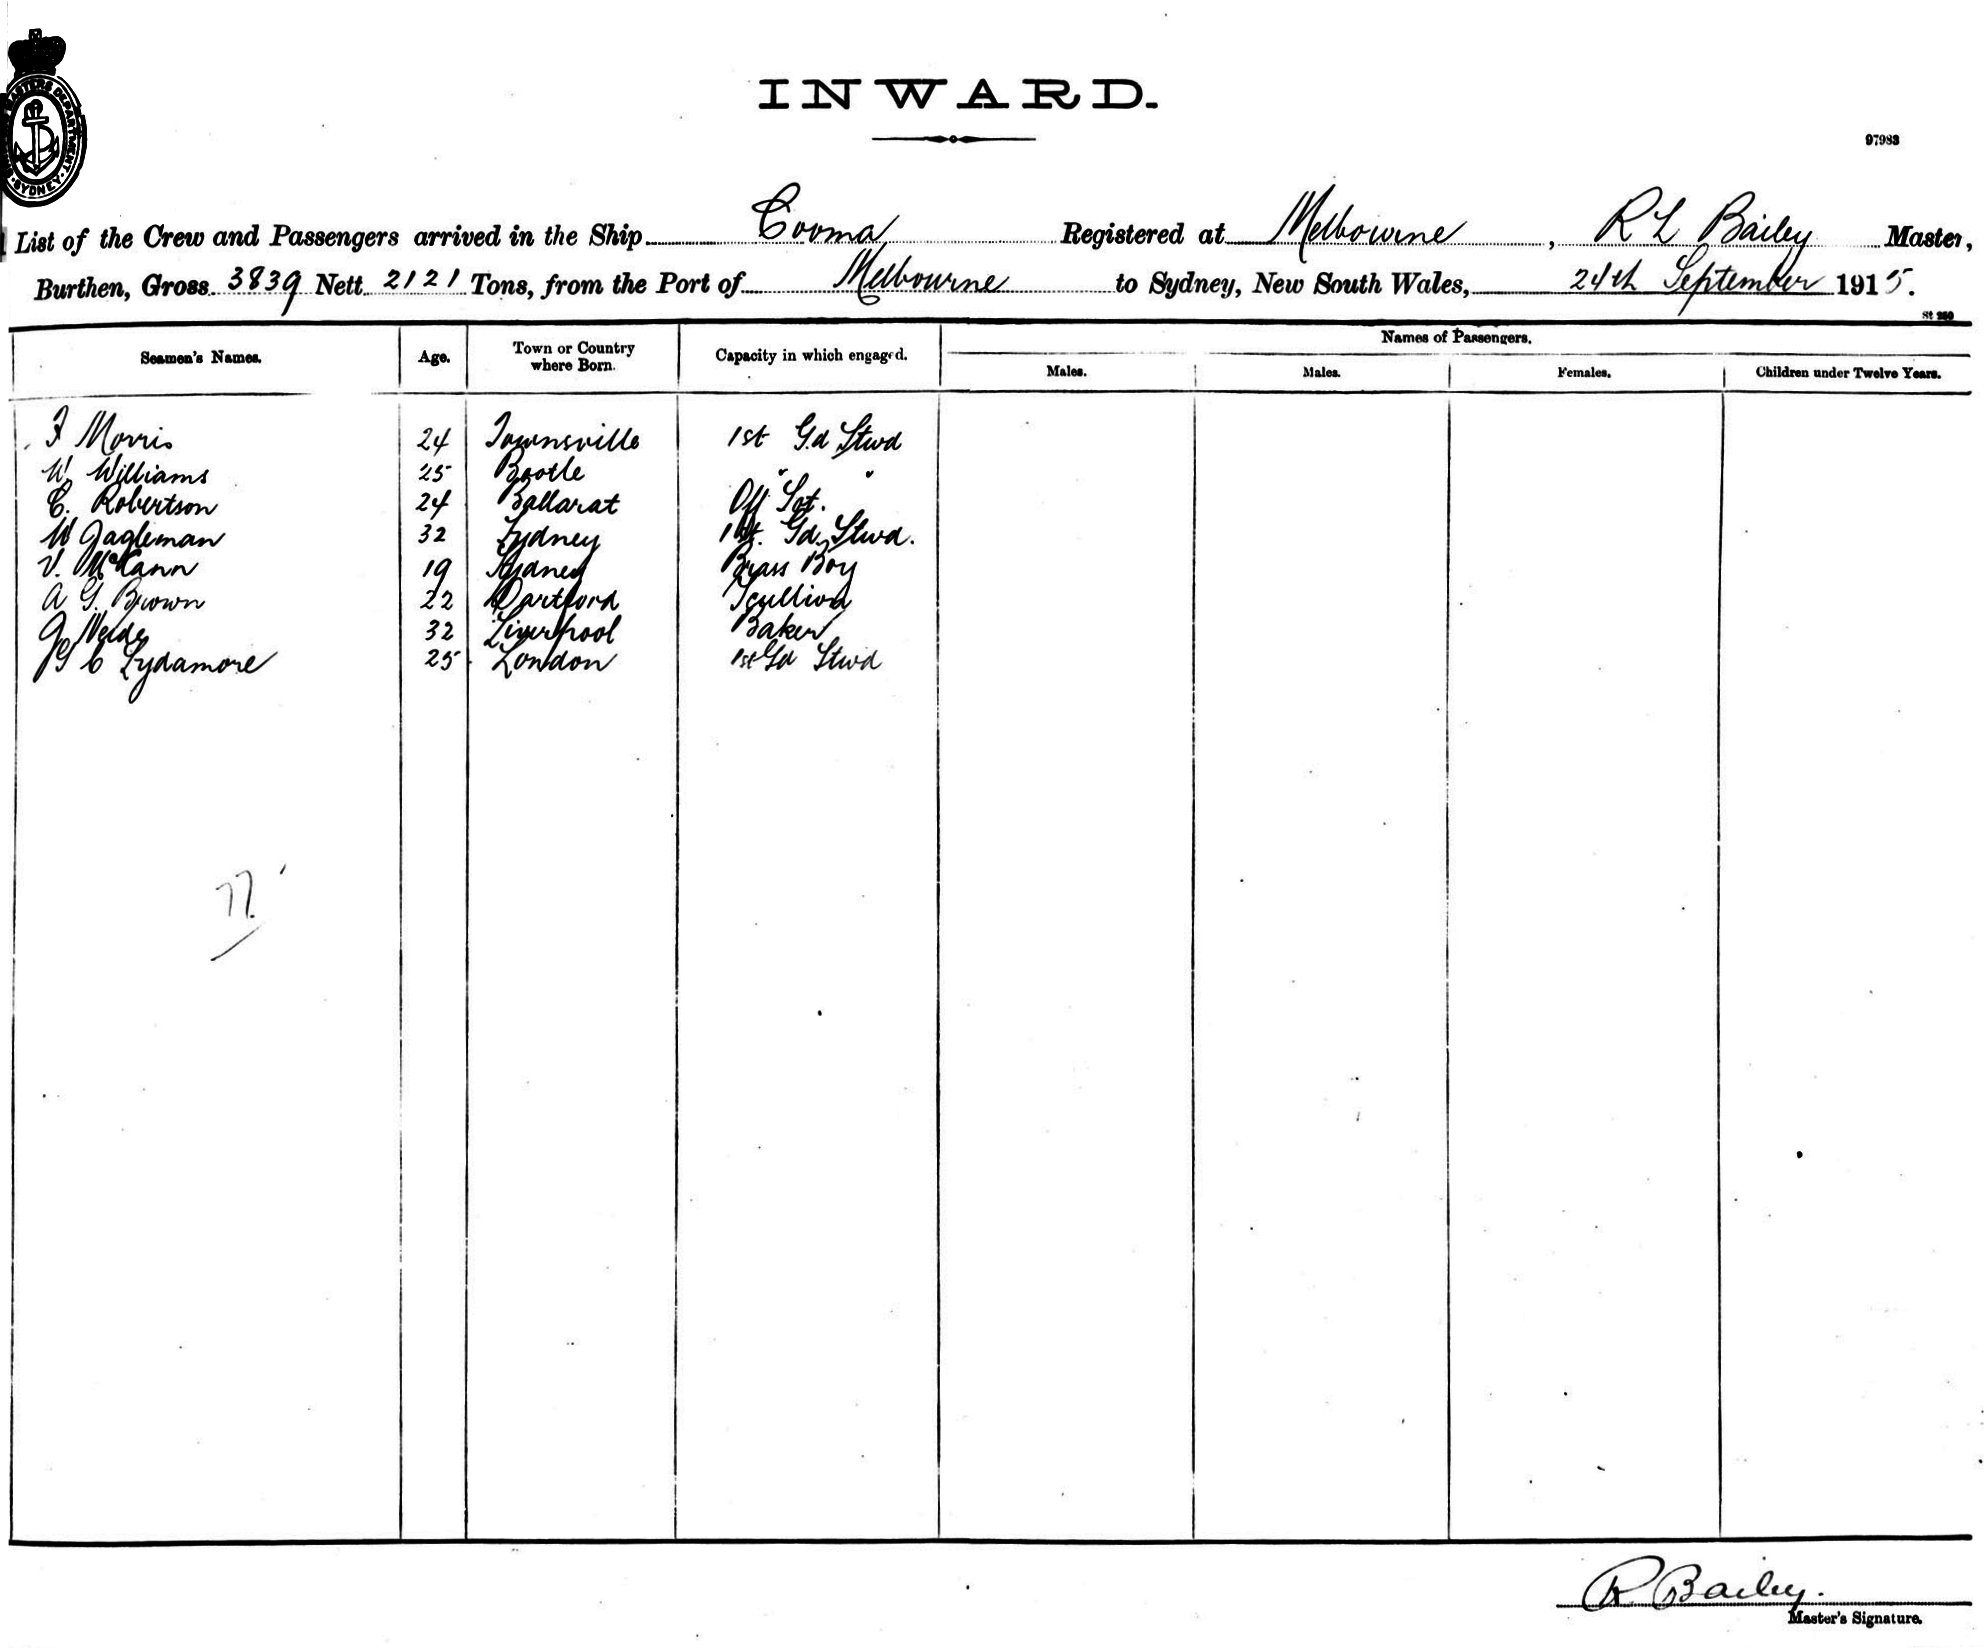 INWARD.
97983
List of the Crew and Passengers arrived in the Ship Cooma Registered at Melbourne, R L Bailey Master,
Burthen, Gross 3839 Nett 2121 Tons, from the Port of Melbourne to Sydney, New South Wales, 24th September 1915.
St 280
Seamen's Names. Age. Town or Country where Born. Capacity in which engaged. Names of Passengers.
Males. Males. Females. Children under Twelve Years.
F Morris 24 Townsville 1st Gd Stwd
W. Williams 25 Bootle " "
C. Robertson 24 Ballarat Off
W Jagleman 32 Sydney 1st. Gd Stwd.
V. McKann 19 Sydney Brass Boy
A G. Brown 22 Dartford Scullion
32 Liverpool Baker
C Sydamore 25 London 1st Gd Stwd
77.
R Bailey.
Master's Signature.
SYDNEY